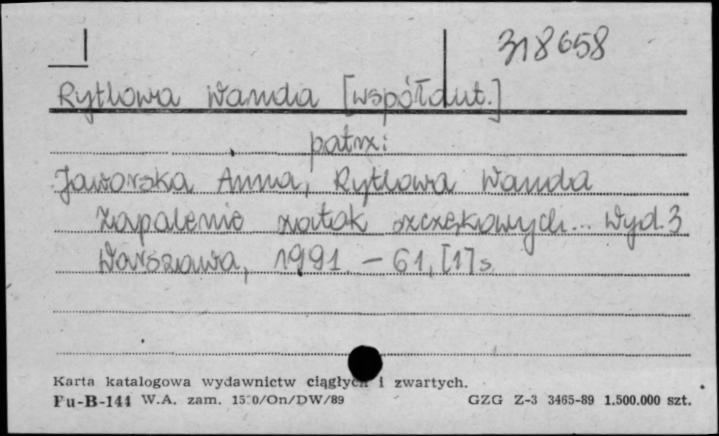 318658
Rytlowa Wanda [współaut.]
patrz:
Jaworska Anna, Rytlowa Wanda
Zapalenie zatok szczękowych... Wyd. 3
Warszawa, 1991. - 61, [1] s.
Karta katalogowa wydawnictw ciągłych i zwartych.
Pu-B-144 W.A. zam. 1530/On/DW/89 GZG Z-3 3465-89 1.500.000 szt.